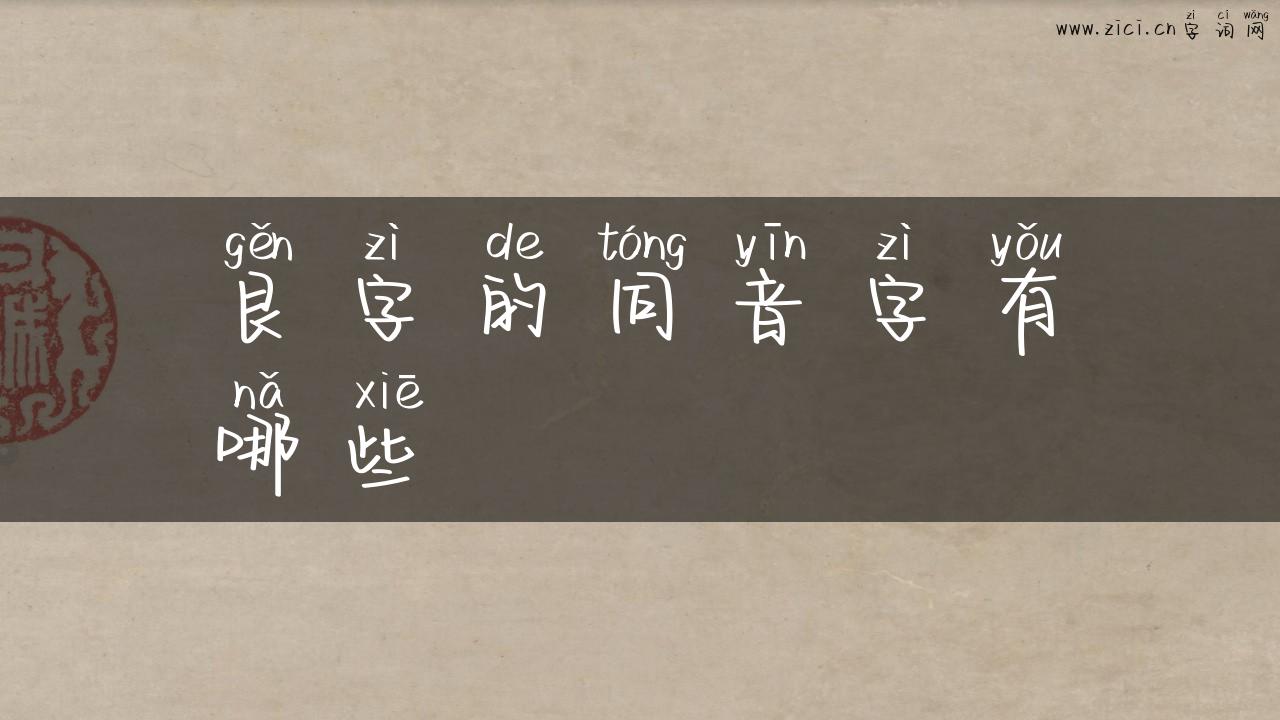 zì cí wǎng
www.zici.cn 字词网
gěn zì de tóng yīn zì yǒu
艮字的同音字有
nǎ xiē
哪些